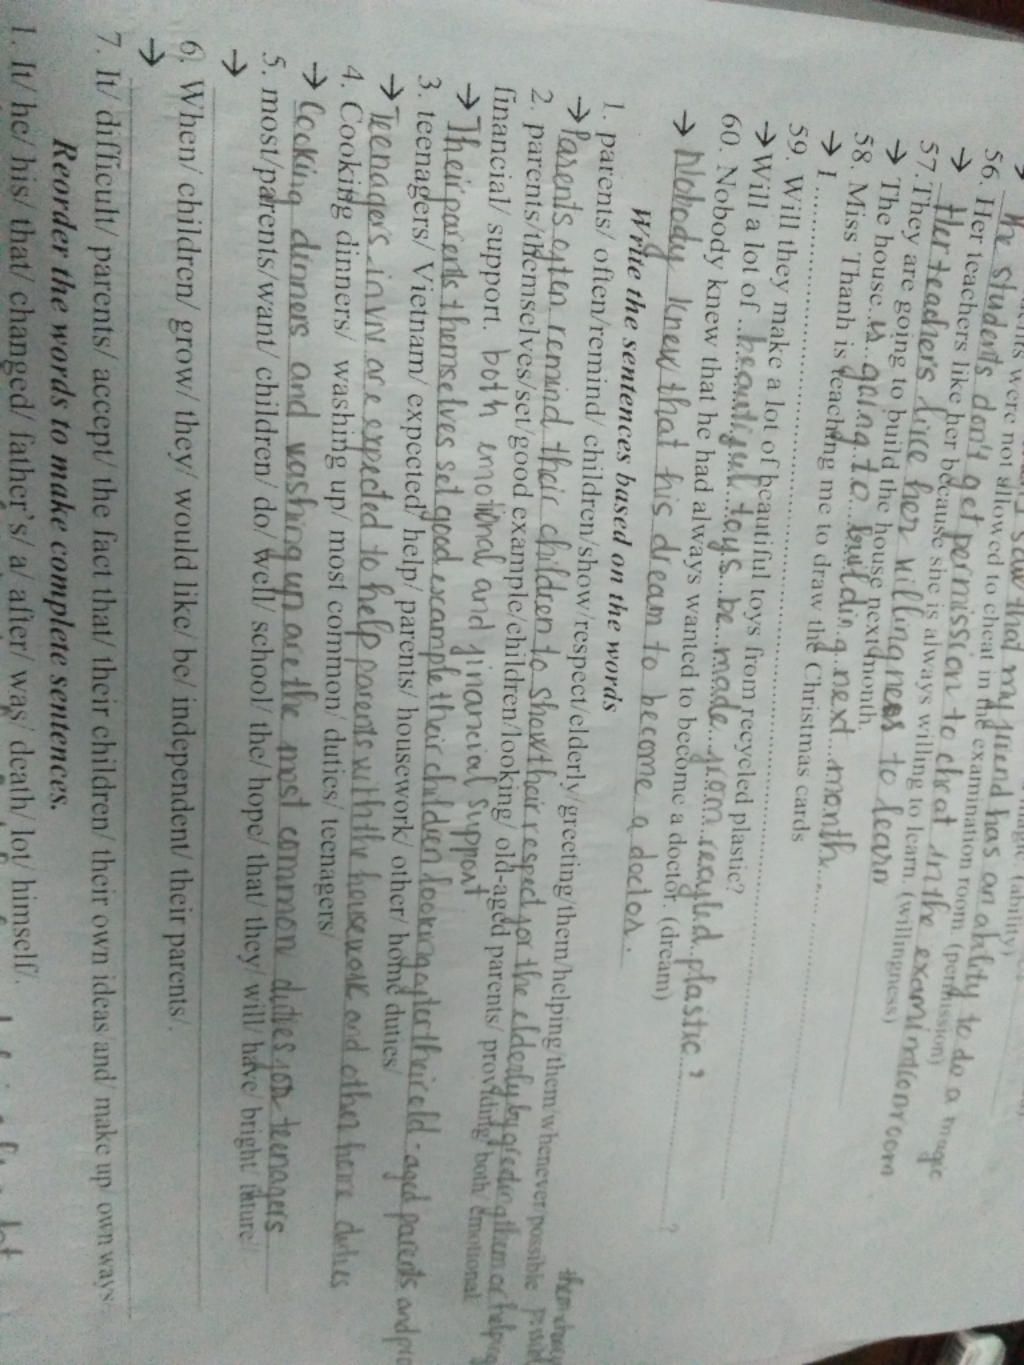 The students don't get permission to cheat in the examination room
56. Her teachers like her because she is always willing to learn. (willingness)
→ Her teachers like her willingness to learn
57. They are going to build the house next month.
→ The house is going to building next month
58. Miss Thanh is teaching me to draw the Christmas cards
→ I
59. Will they make a lot of beautiful toys from recycled plastic?
→ Will a lot of beautiful toys be made from recycled plastic?
60. Nobody knew that he had always wanted to become a doctor. (dream)
→ Nobody knew that his dream to become a doctor.
Write the sentences based on the words
1. parents/ often/remind/ children/show/respect/elderly/greeting/them/helping/them whenever possible
→ Parents often remind their children to show their respect for the elderly by greeting them or helping
2. parents/themselves/set/good example/children/looking/ old-aged parents/ providing/ both/ emotional
financial/ support. both emotional and financial support
→ Their parents themselves set good example their children looking after their old-aged parents and
3. teenagers/ Vietnam/ expected/ help/ parents/ housework/ other/ home duties/
→ Teenagers in VN are expected to help parents with the housework and other home duties
4. Cooking dinners/ washing up/ most common/ duties/ teenagers/
→ Cooking dinners and washing up are the most common duties for teenagers
5. most/parents/want/ children/ do/ well/ school/ the/ hope/ that/ they/ will/ have/ bright/ future/
→
6. When/ children/ grow/ they/ would like/ be/ independent/ their parents/.
→
7. It/ difficult/ parents/ accept/ the fact that/ their children/ their own ideas/and/ make up/ own ways
Reorder the words to make complete sentences.
1. It/ he/ his/ that/ changed/ father's/ a/ after/ was/ death/ lot/ himself/.